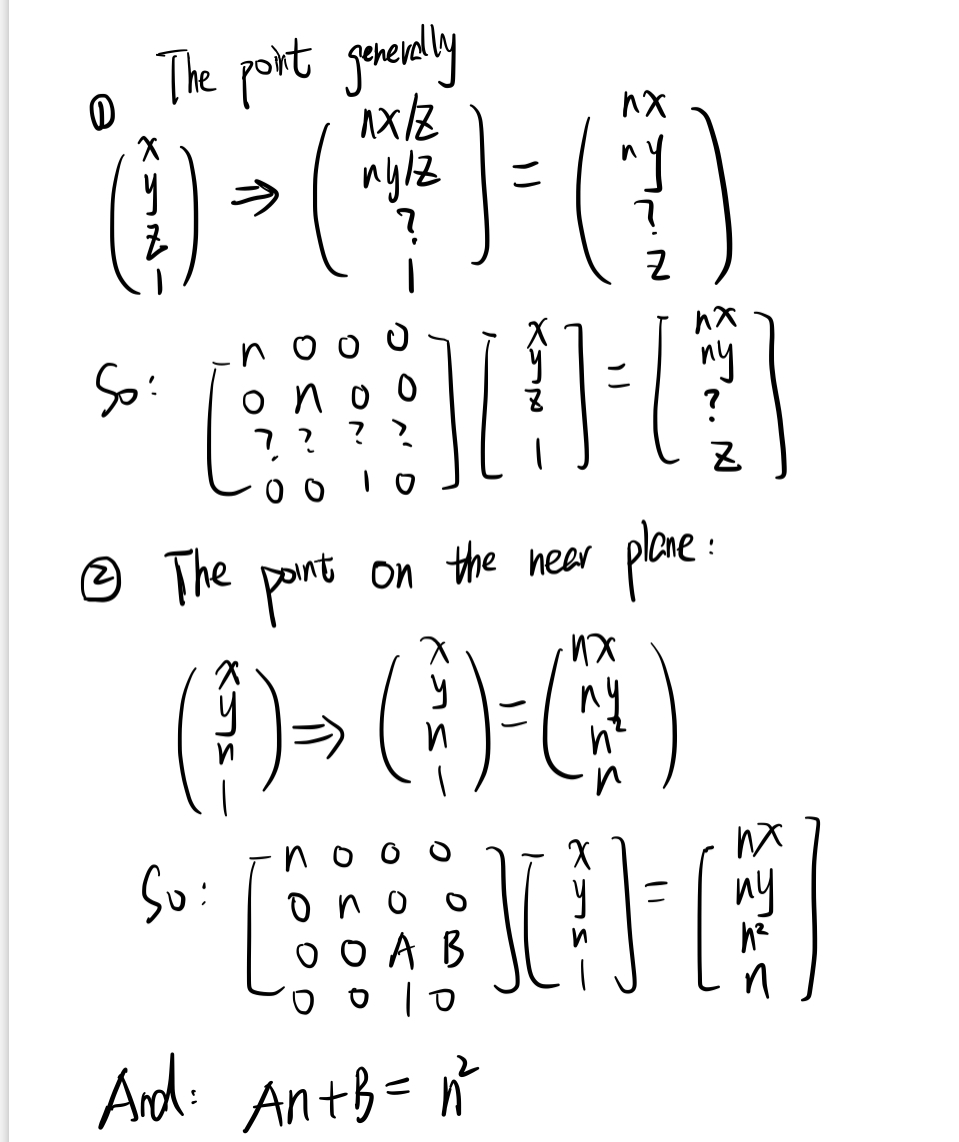 ① The point generally
(x y z 1) ⇒ (nx/z ny/z ? 1) = (nx ny ? z)
So: [n 0 0 0; 0 n 0 0; ? ? ? ?; 0 0 1 0] [x y z 1] = [nx ny ? z]
② The point on the neer plane:
(x y n 1) ⇒ (x y n 1) = (nx ny n² n)
So: [n 0 0 0; 0 n 0 0; 0 0 A B; 0 0 1 0] [x y n 1] = [nx ny n² n]
And: An+B = n²